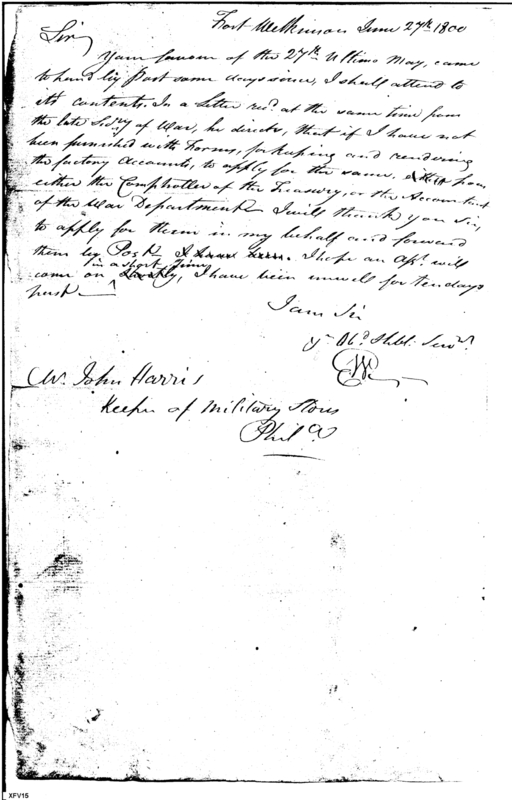 Fort Wilkinson June 27th 1800
Sir
Your favour of the 27th Ultimo May, came
to hand by Post some days since, I shall attend to
its contents. In a letter recd. at the same time from
the late Secry of War, he directs, that if I have not
been furnished with Forms, for keeping and rendering
the factory Accounts, to apply for the same, from
either the Comptroller of the Treasury, or the Accountant
of the War Department I will thank you Sir,
to apply for them in my behalf and forward
them by Post. I hope an Asst. will
in a short time
come on shortly, I have been unwell for ten days
past
I am Sir
yr Obd. Hbl. Servt.
EW
Mr. John Harris
Keeper of Military Stores
Phila
XFV15